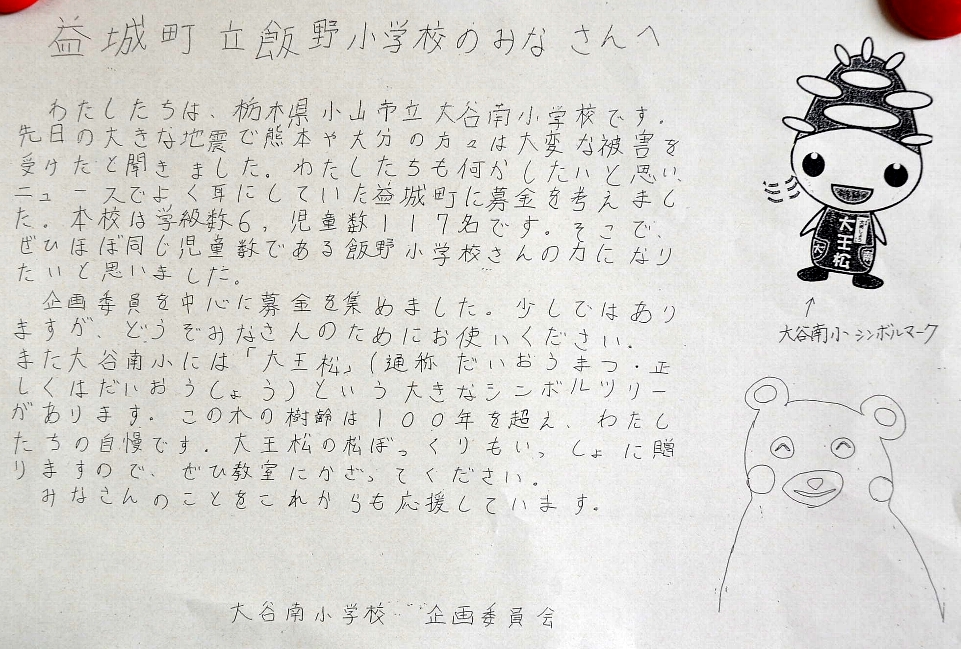 益城町立飯野小学校のみなさんへ
わたしたちは、栃木県小山市立大谷南小学校です。
先日の大きな地震で熊本や大分の方々は大変な被害を
受けたと聞きました。わたしたちも何かしたいと思い、
ニュースでよく耳にしていた益城町に募金を考えまし
た。本校は学級数6，児童数117名です。そこで、
ぜひほぼ同じ児童数である飯野小学校さんの力になり
たいと思いました。
企画委員を中心に募金を集めました。少しではあり
ますが、どうぞみなさんのためにお使いください。
また大谷南小には「大王松」(通称だいおうまつ・正
しくはだいおうしょう)という大きなシンボルツリー
があります。この木の樹齢は100年を超え、わたし
たちの自慢です。大王松の松ぼっくりもいっしょに贈
りますので、ぜひ教室にかざってください。
みなさんのことをこれからも応援しています。
大谷南小学校 企画委員会
大王松
大
南
↑
大谷南小シンボルマーク